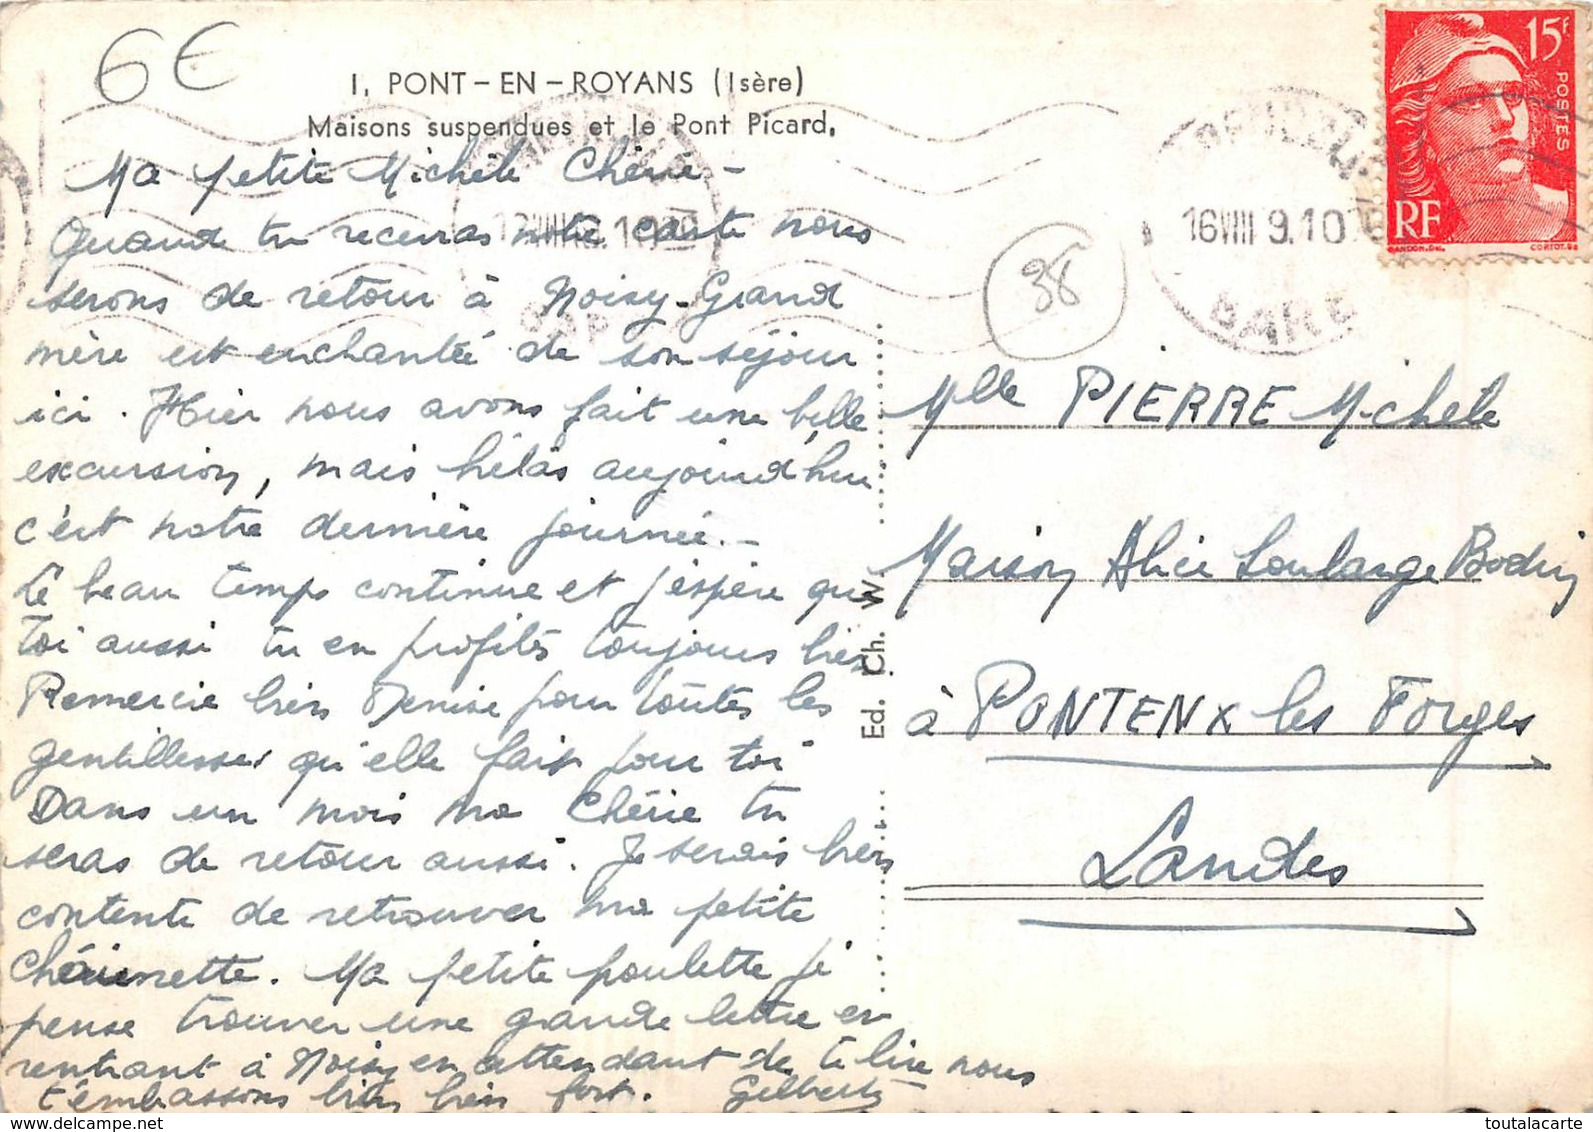 6€
1. PONT-EN-ROYANS (Isère)
Maisons suspendues et le Pont Picard.
Ma petite Michèle Chérie -
Quand tu recevras notre carte nous
serons de retour à Noisy - Grand
mère est enchantée de son séjour
ici. Hier nous avons fait une belle
excursion, mais hélas aujourd'hui
c'est notre dernière journée. -
Le beau temps continue et j'espère que
toi aussi tu en profites toujours bien
Remercie bien Denise pour toutes les
gentillesses qu'elle fait pour toi
Dans un mois ma Chérie tu
seras de retour aussi. Je serais bien
contente de retrouver ma petite
Chérinette. Ma petite poulette je
pense trouver une grande lettre en
rentrant à Noisy en attendant de te lire nous
t'embrassons bien bien fort. Gilberte
Ed. Ch. W.
38
16 VIII 9.10
GARE
15F
POSTES
RF
GANDON.DEL.
CORTOT.SC
Mlle PIERRE Michèle
Maison Alice Soulange Bodin
à PONTENX les Forges
Landes
toutalacarte